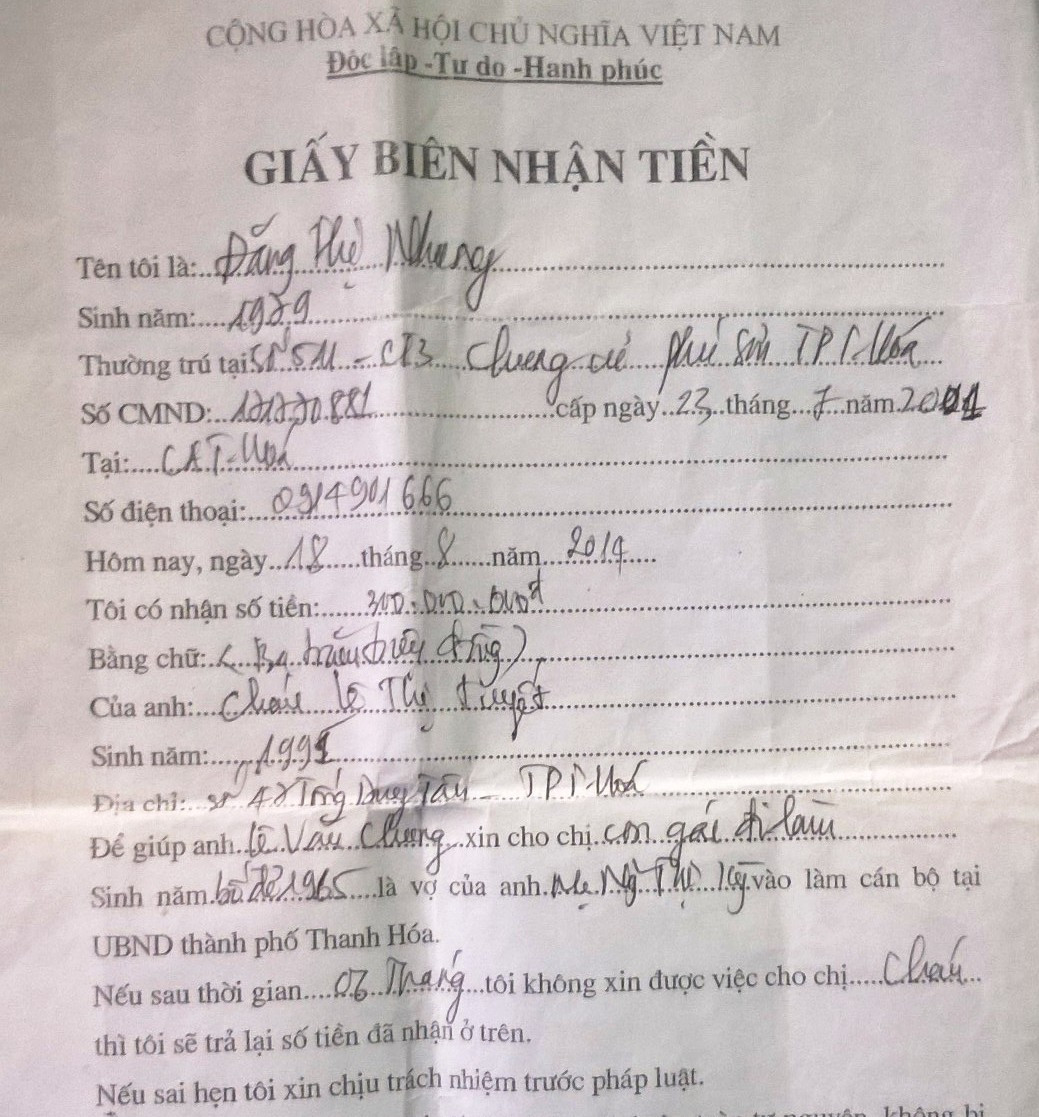 CỘNG HÒA XÃ HỘI CHỦ NGHĨA VIỆT NAM
Độc lập -Tự do -Hạnh phúc
GIẤY BIÊN NHẬN TIỀN
Tên tôi là:..Đặng Thị Nhung
Sinh năm:....1979
Thường trú tại CT3 Chung cư phú Sơn TP T.Hoá
Số CMND:...171770881 cấp ngày..23..tháng...7..năm.2001
Tại:....CA T.Hoá
Số điện thoại:...0914901666
Hôm nay, ngày..18.....tháng..8......năm...2014....
Tôi có nhận số tiền:......300.000.000đ
Bằng chữ:..(Ba trăm triệu đồng)
Của anh:...Cháu Lê Thị Tuyết
Sinh năm:......1991
Địa chỉ:...số 47 Tống Duy Tân - TP T.Hoá
Để giúp anh..Lê Văn Chung...xin cho chị..con gái đi làm
Sinh năm.bố đẻ 1965....là vợ của anh.Mẹ.Ng Thị vào làm cán bộ tại
UBND thành phố Thanh Hóa.
Nếu sau thời gian.... Tháng...tôi không xin được việc cho chị.....Cháu...
thì tôi sẽ trả lại số tiền đã nhận ở trên.
Nếu sai hẹn tôi xin chịu trách nhiệm trước pháp luật.
không bị